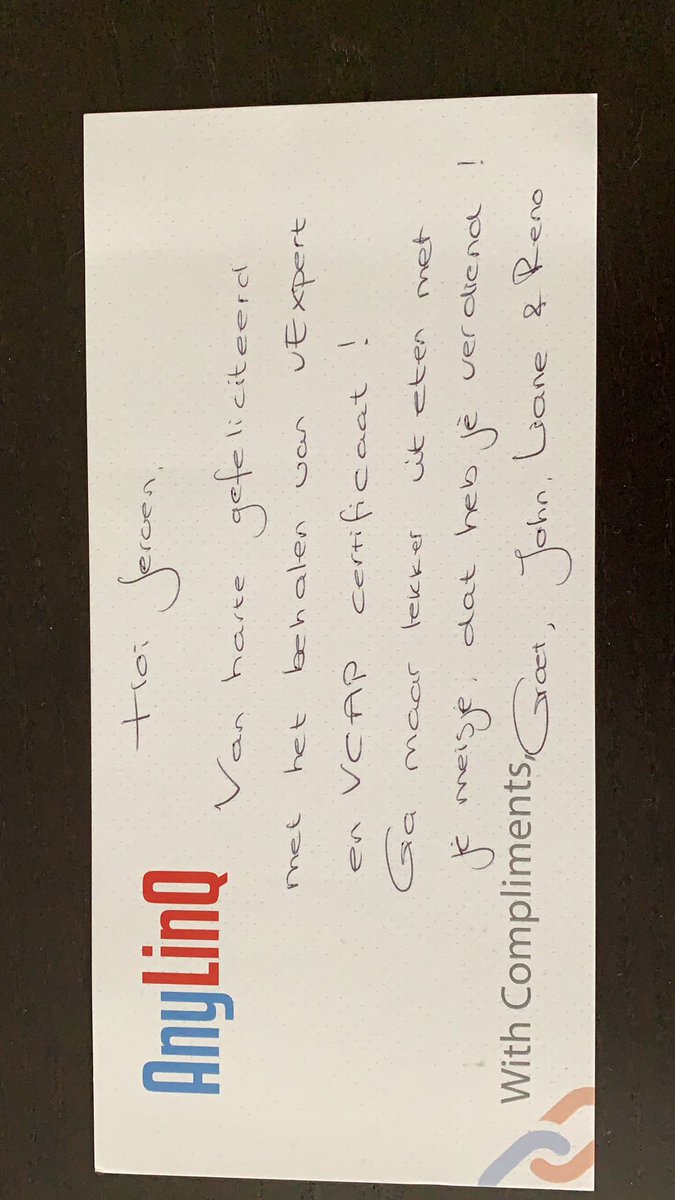 AnyLinQ
Hoi Jeroen,
Van harte gefeliciteerd
met het behalen van vExpert
en VCAP certificaat!
Ga maar lekker uit eten met
je meisje, dat heb je verdiend!
With Compliments,
Groet, John, Liane & Reno